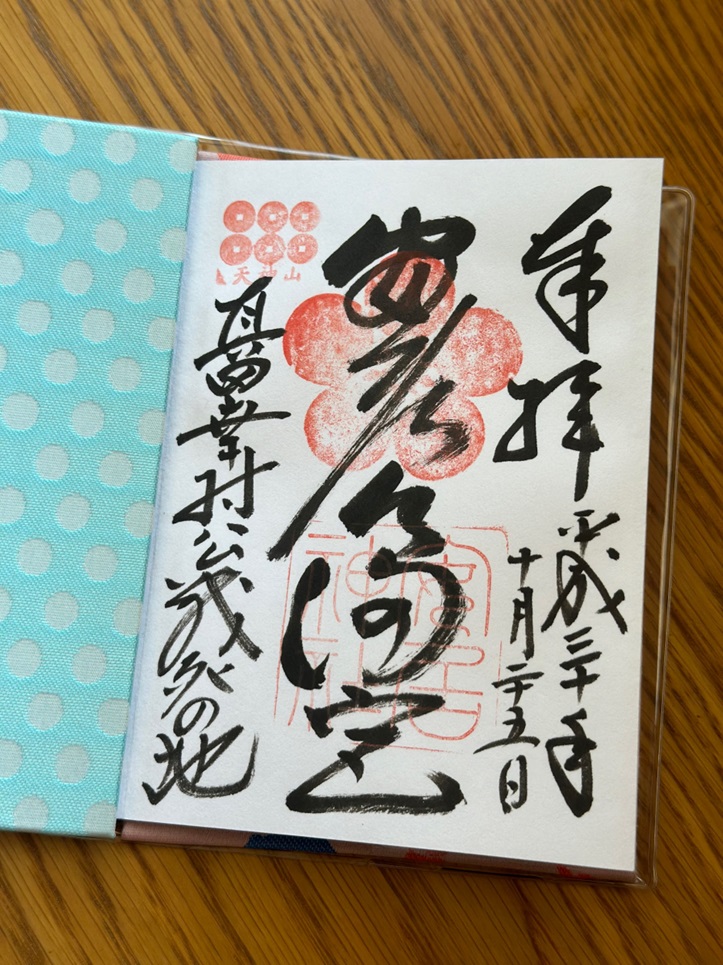 奉拝
平成三十年
十月二十五日
安居天満宮
安居
神社
天神山
真田幸村公戦死の地